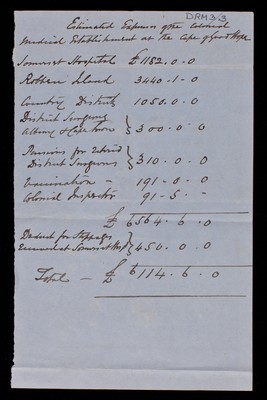 DRM3/3
Estimated Expenses of the Colonial
Medical Establishment at the Cape of Good Hope
Somerset Hospital £1182.0.0
Robben Island 3440.1.0
Country Districts 1050.0.0
District Surgeons
Albany & Cape Town } 300.0.0
Pensions for 2 retired
District Surgeons } 310.0.0
Vaccination - 191.0.0
Colonial Inspector 91.5.-
£ 6564.6.0
Deduct for Stoppages
Recovered at Somerset Hosp } 450.0.0
Total - £ 6114.6.0